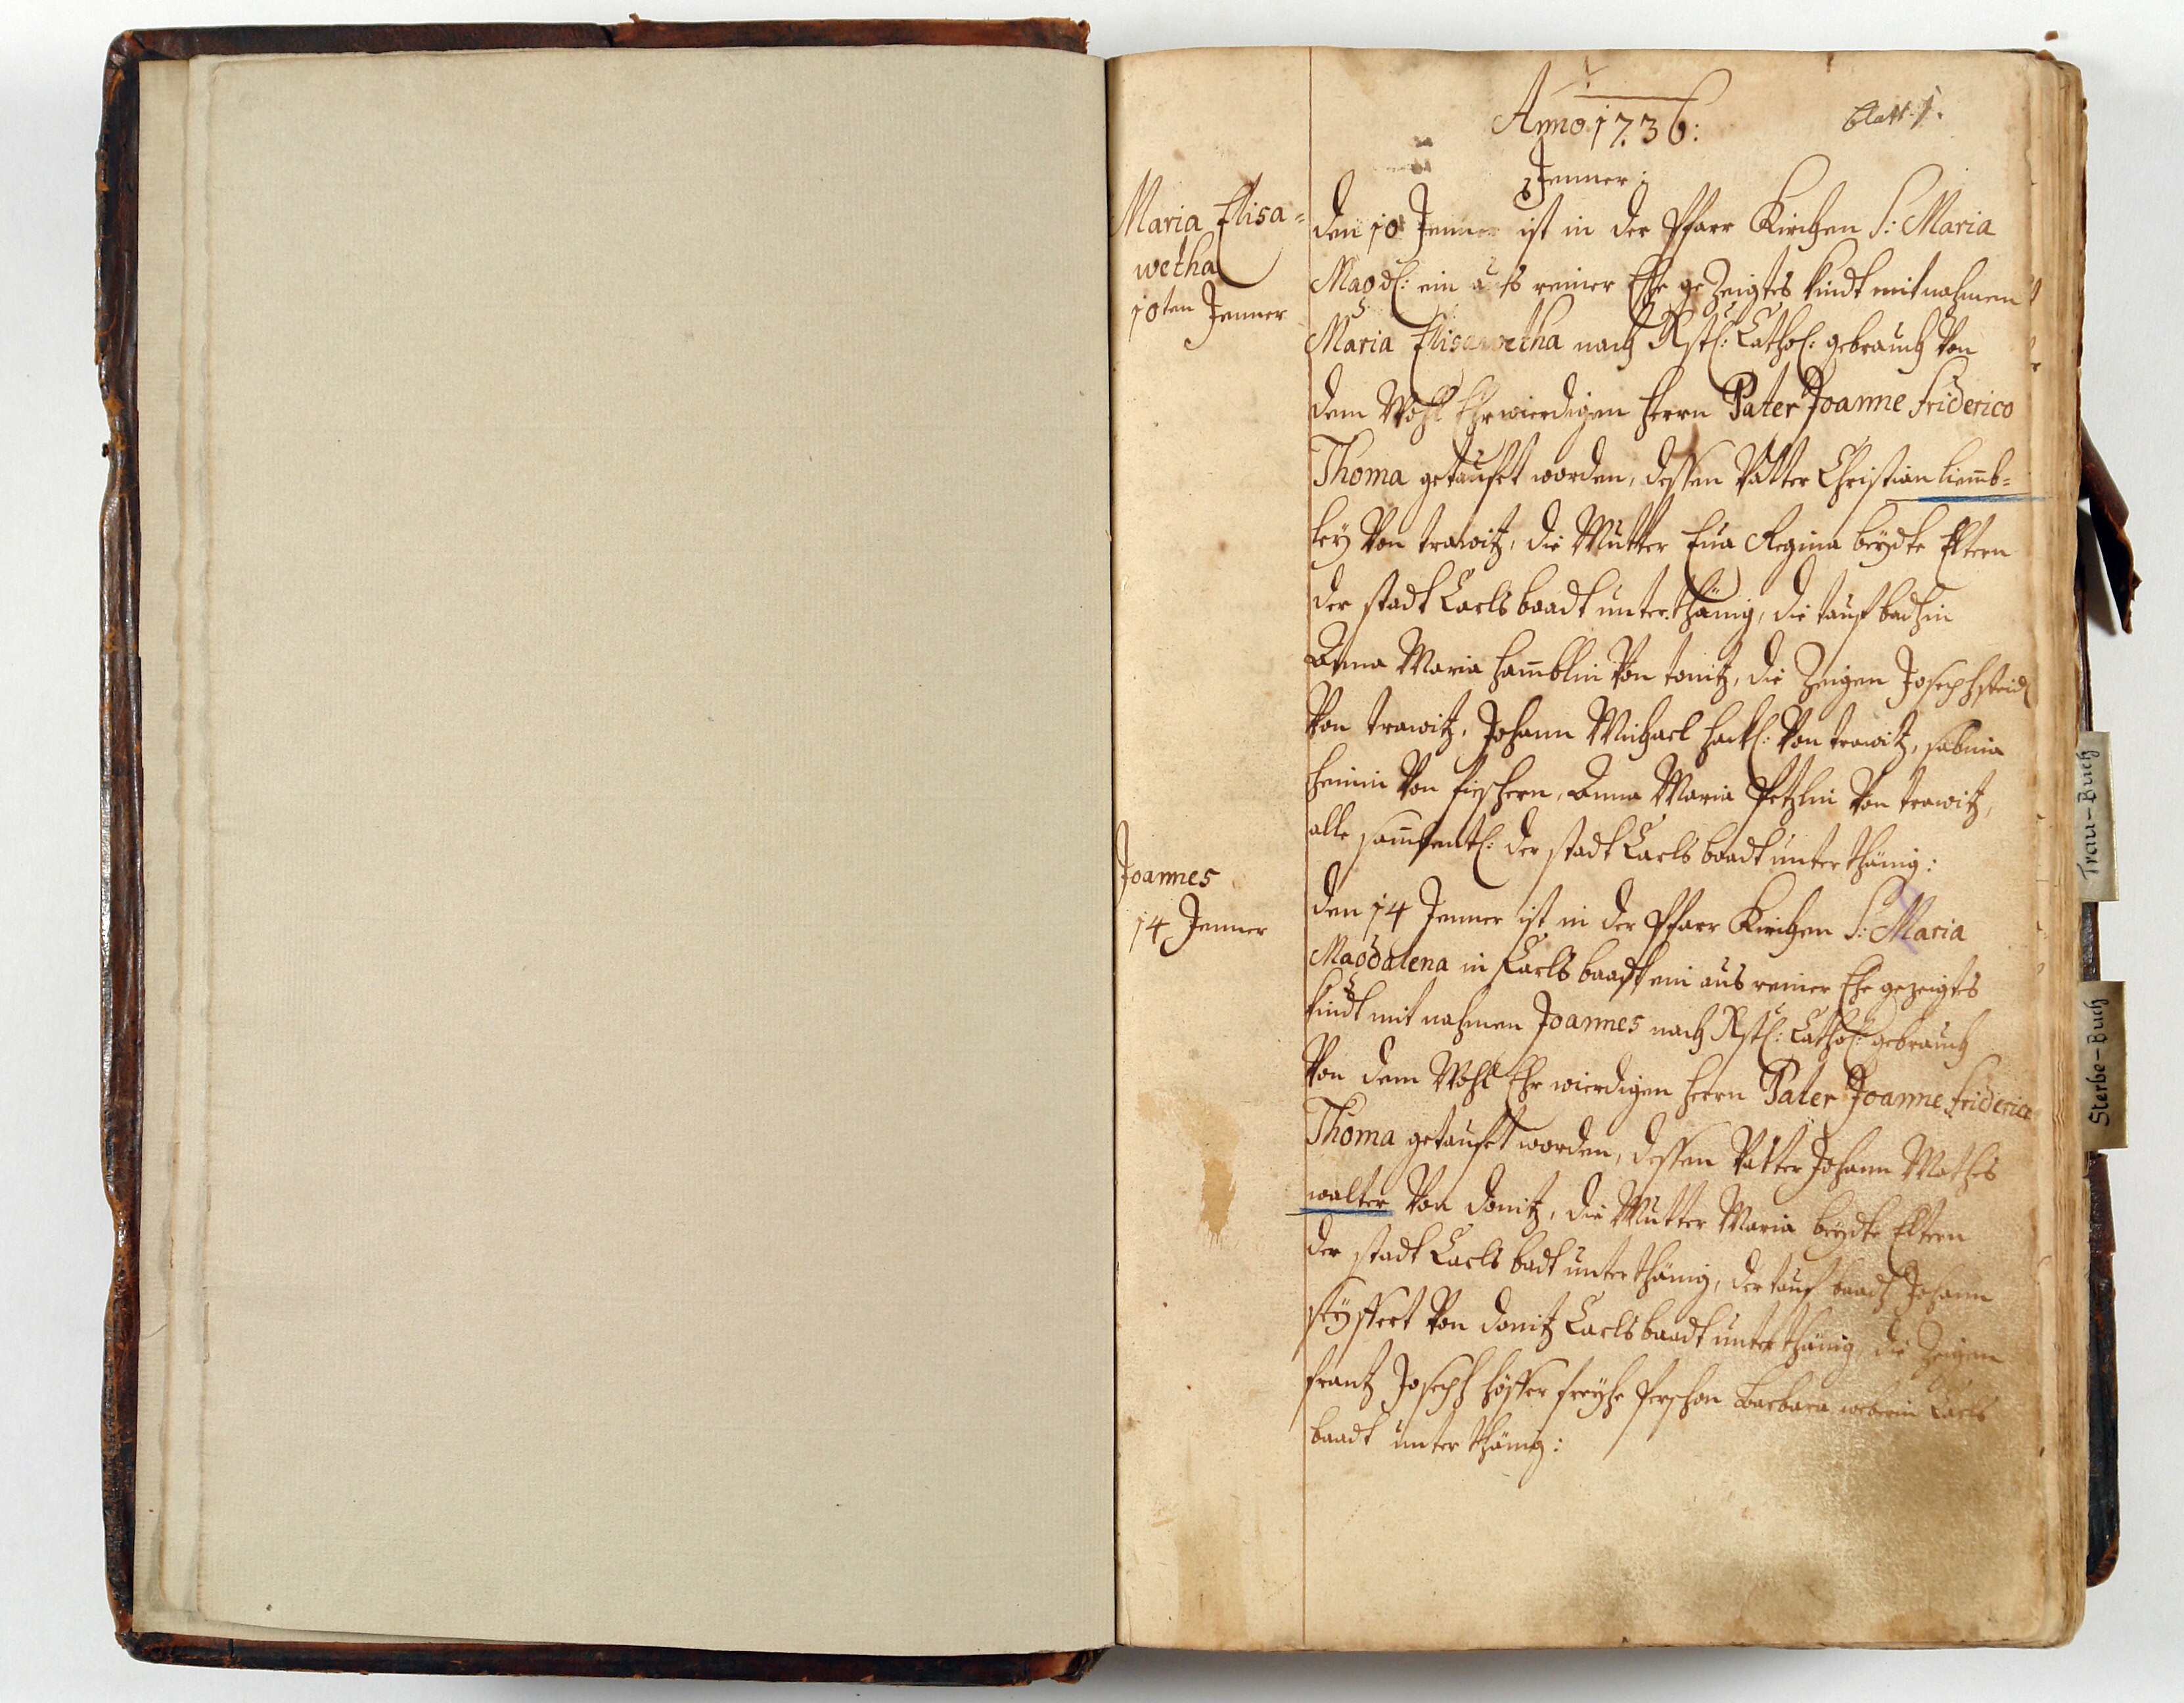 Anno 1736:
Blatt 1.
Jenner:
Maria Elisa=
wetha
10ten Jenner
den 10 Jenner ist in der Pfarr Kirchen S: Maria
Magdl: ein auß reiner Ehe gezeigtes kindt mit nahmen
Maria Elisawetha nach Xstl: Cathol: gebrauch von
dem Wohl Ehrwierdigen Herrn Pater Joanne Friderico
Thoma getaufet worden, dessen Vatter Christian
von trawitz, die Mutter Eva Regina beydte Eltern
der stadt Carlsbaadt unterthänig, die tauf
Anna Maria von tonitz, die Zeigen Joseph
von trawitz, Johann Michael Hackl: von trawitz, sabina
von fischern, Anna Maria Petzlin von trawitz,
alle sambentl: der stadt Carlsbaadt unterthänig:
Joannes
14 Jenner
den 14 Jenner ist in der Pfarr Kirchen S: Maria
Magdalena in Carlsbaadt ein aus reiner Ehe gezeigtes
kindt mit nahmen Joannes nach Xstl: Cathol: gebrauch
von dem Wohl Ehr wierdigen Herrn Pater Joanne Friderico
Thoma getaufet worden, dessen Vatter Johann Mathes
walter von donitz, die Mutter Maria beydte Eltern
der stadt Carlsbadt unterthänig, der tauf Johann
von donitz Carlsbaadt unterthänig, die Zeigen
frantz Joseph freyhe Pershon Barbara weberin Carls
baadt unterthänig:
Trau-Buch
Sterbe-Buch